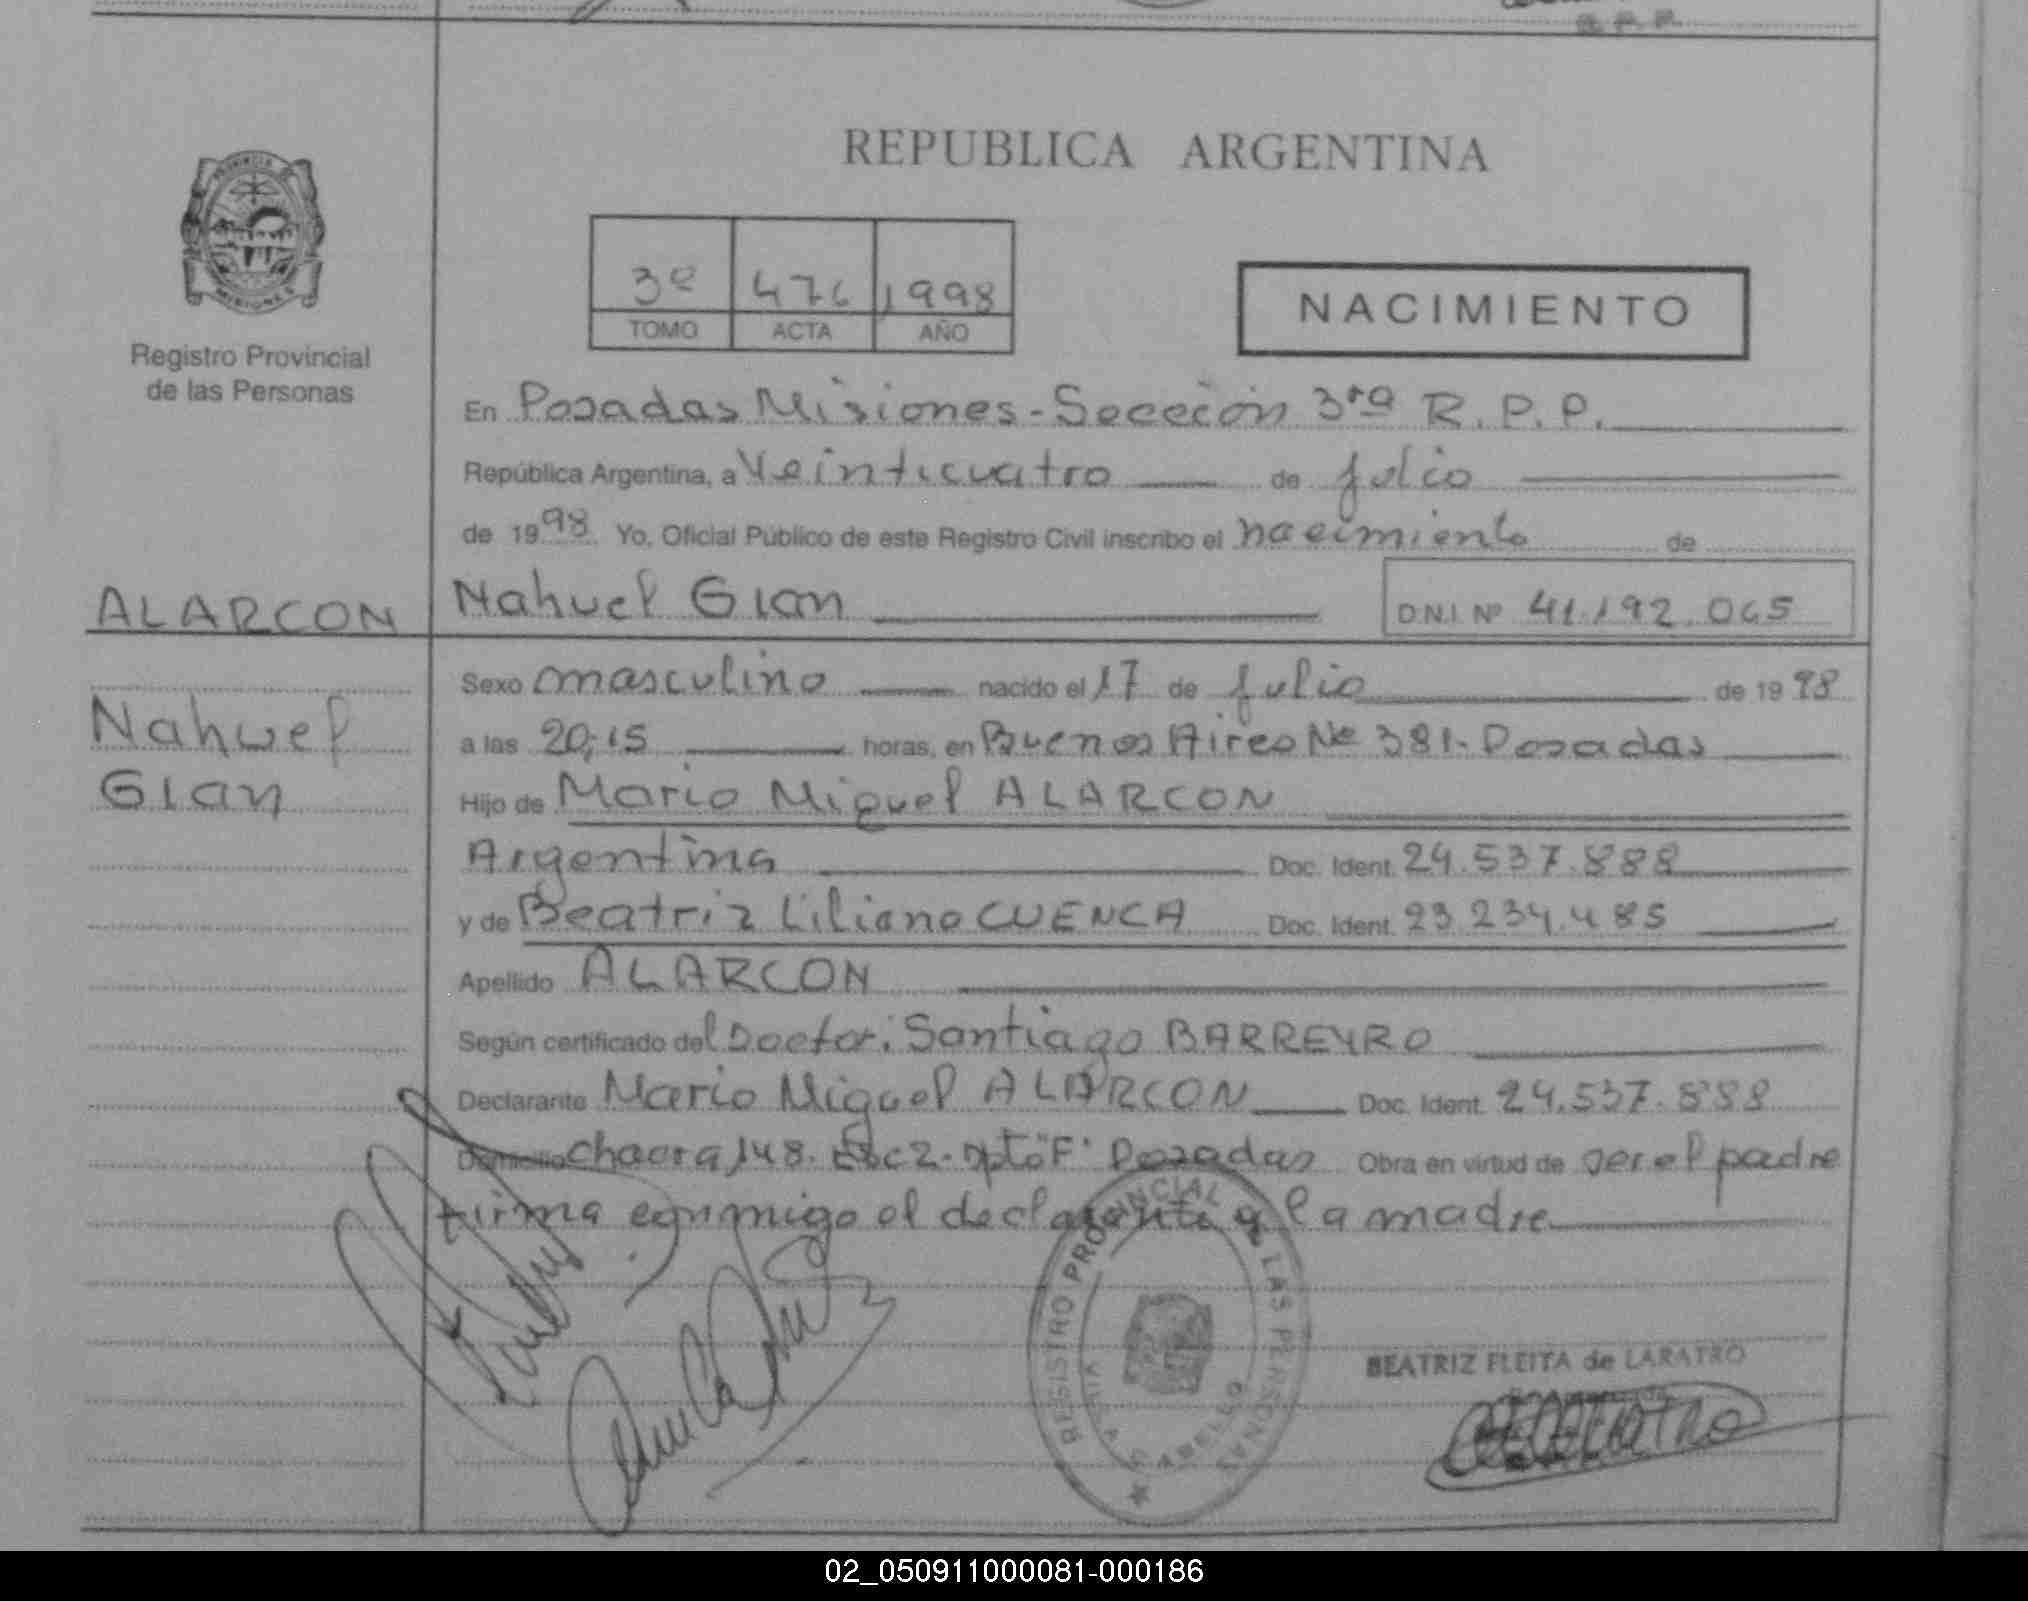 R. P. P.
REPUBLICA ARGENTINA
PROVINCIA
MISIONES
Registro Provincial
de las Personas
3º 476 1998
TOMO ACTA AÑO
NACIMIENTO
En Posadas Misiones - Sección 3ra R. P. P.
República Argentina, a Veinticuatro de julio
de 1998 Yo, Oficial Público de este Registro Civil inscribo el nacimiento de
ALARCON
Nahuel Gian
D.N.I. Nº 41.192.065
Nahuel
Gian
Sexo masculino nacido el 17 de julio de 1998
a las 20,15 horas, en Buenos Aires Nº 381 - Posadas
Hijo de Mario Miguel ALARCON
Argentina Doc. Ident. 24.537.888
y de Beatriz Liliana CUENCA Doc. Ident. 23.234.485
Apellido ALARCON
Según certificado del Doctor: Santiago BARREYRO
Declarante Mario Miguel ALARCON Doc. Ident. 24.537.888
Domicilio Chacra 148. Esc 2. Dpto "F" Posadas Obra en virtud de ser el padre
firma conmigo el declarante y la madre
REGISTRO PROVINCIAL DE LAS PERSONAS
BEATRIZ FLEITA de LARATRO
02_050911000081-000186